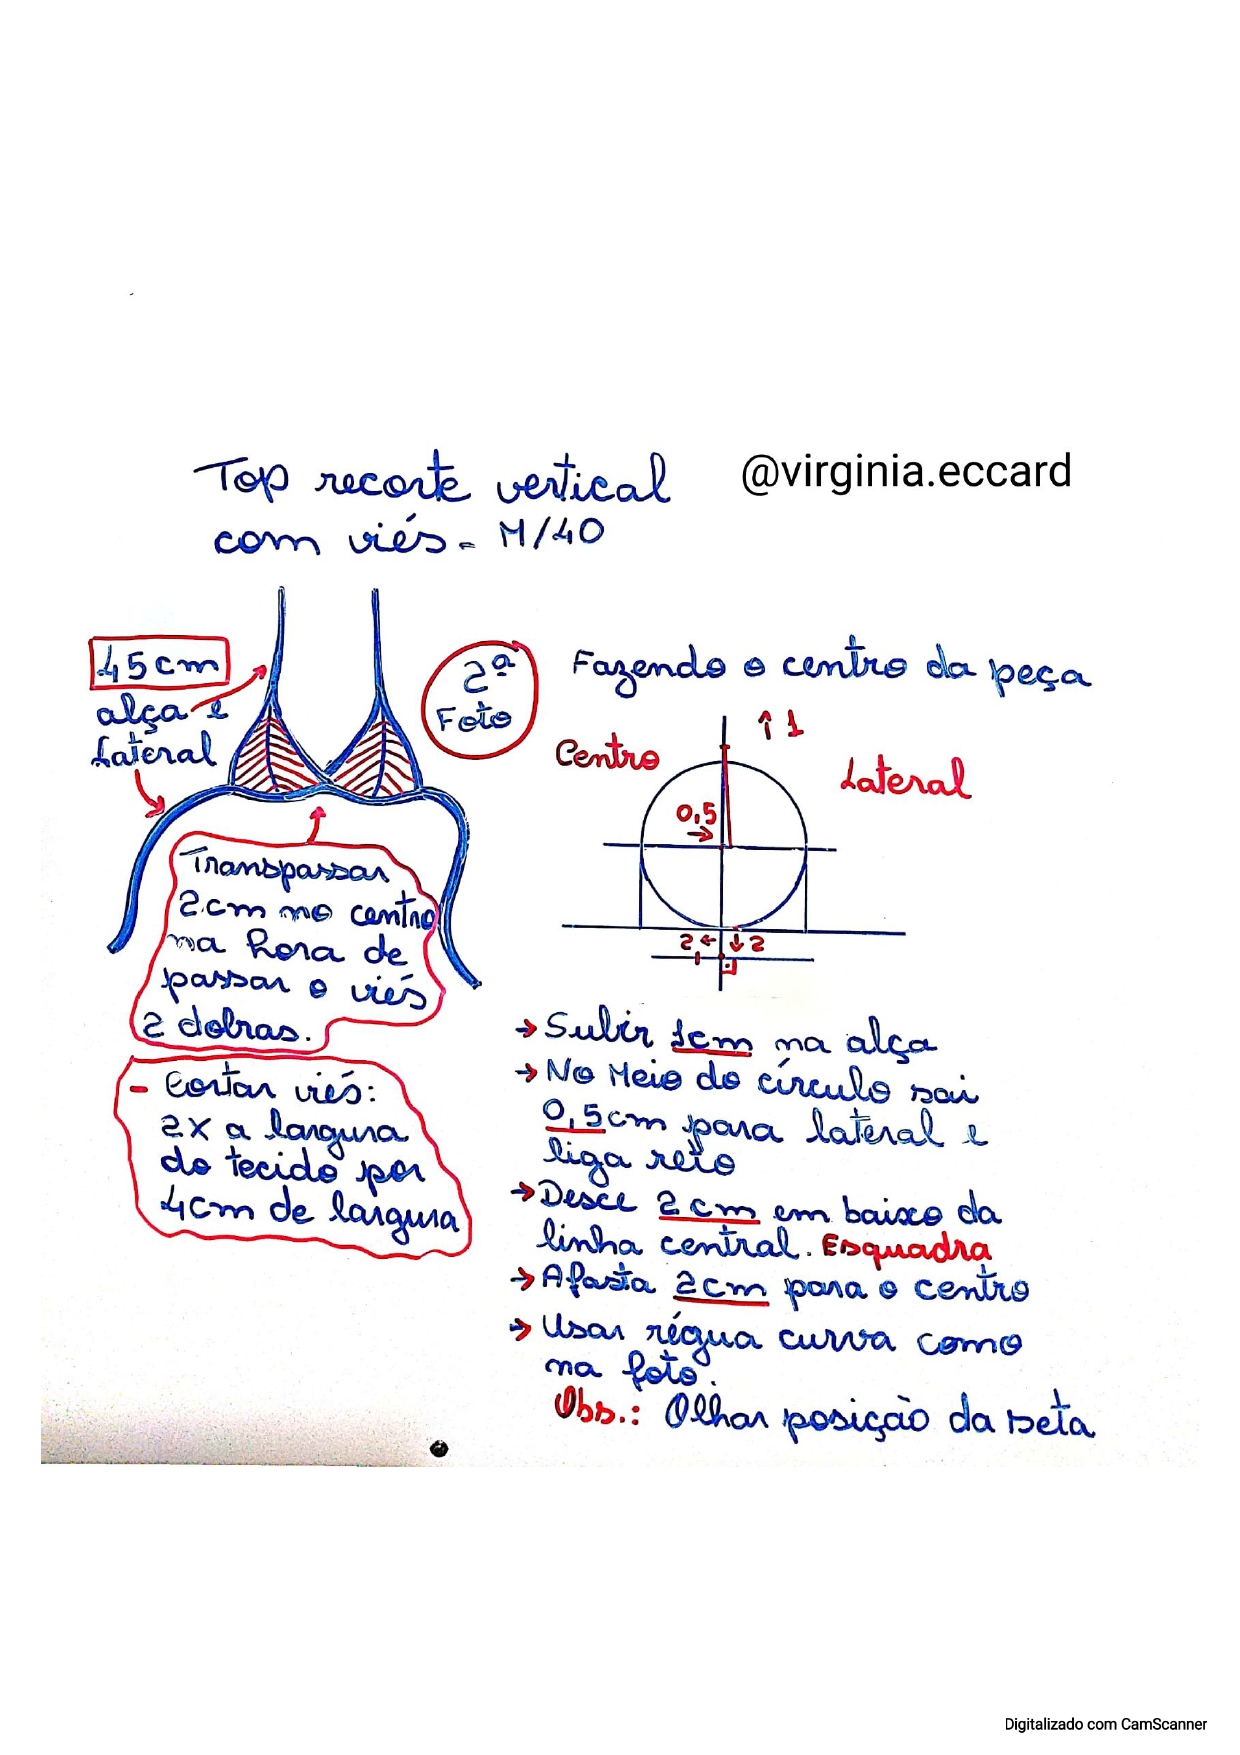 Top recorte vertical
com viés - M/40
@virginia.eccard
45cm
alça e
Lateral
2ª
Foto
Transpassar
2cm no centro
na hora de
passar o viés
2 dobras.
- Cortar viés:
2x a largura
do tecido por
4cm de largura
Fazendo o centro da peça
↑1
Centro
Lateral
0,5
→
2← ↓2
→ Subir 1cm na alça
→ No Meio do círculo sai
0,5cm para lateral e
liga reto
→ Desce 2cm em baixo da
linha central. Esquadra
→ Afasta 2cm para o centro
→ Usar régua curva como
na foto.
Obs.: Olhar posição da seta
Digitalizado com CamScanner